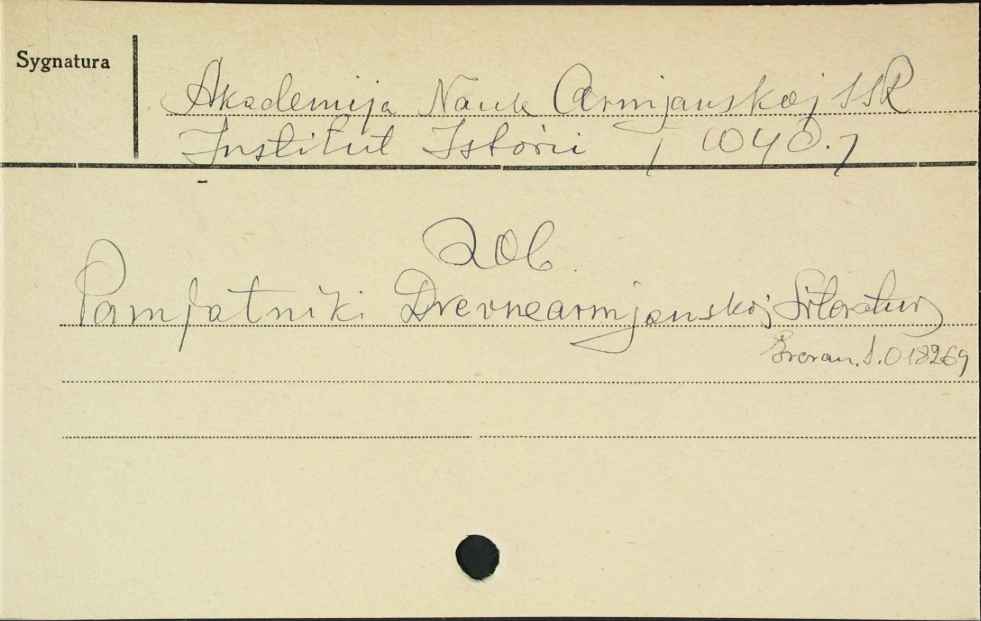 Sygnatura
Akademija Nauk Armjanskoj SSR
Institut Istorii
zob.
Pamjatniki Drevnearmjanskoj Literatury